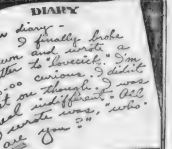 DIARY
diary -
I finally broke
and wrote a
to "lovesick". I'm
curious. I didn't
though. I was
indifferent. All
I wrote was, "who
are you?"